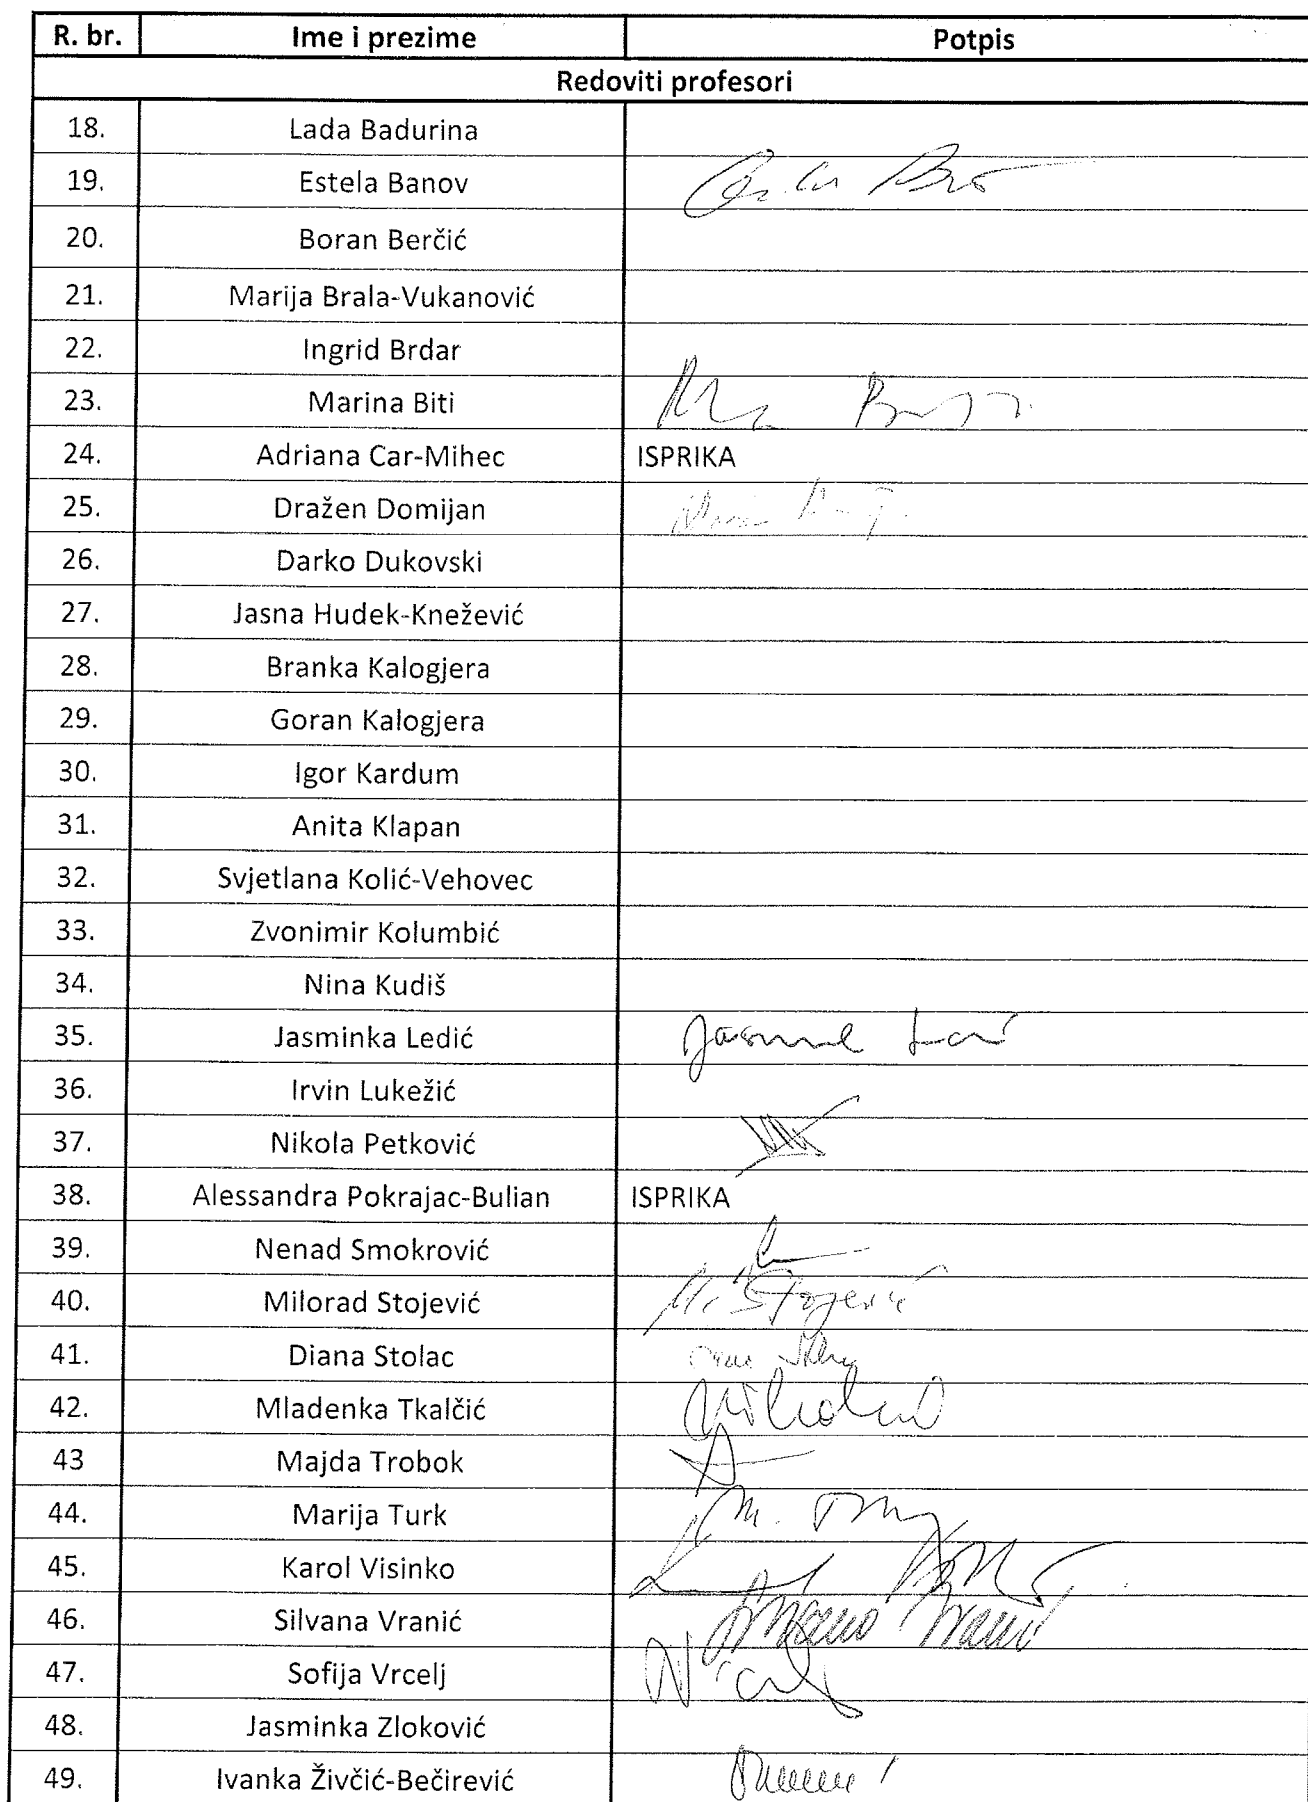 R. br. Ime i prezime Potpis
Redoviti profesori
18. Lada Badurina
19. Estela Banov
20. Boran Berčić
21. Marija Brala-Vukanović
22. Ingrid Brdar
23. Marina Biti
24. Adriana Car-Mihec ISPRIKA
25. Dražen Domijan
26. Darko Dukovski
27. Jasna Hudek-Knežević
28. Branka Kalogjera
29. Goran Kalogjera
30. Igor Kardum
31. Anita Klapan
32. Svjetlana Kolić-Vehovec
33. Zvonimir Kolumbić
34. Nina Kudiš
35. Jasminka Ledić
36. Irvin Lukežić
37. Nikola Petković
38. Alessandra Pokrajac-Bulian ISPRIKA
39. Nenad Smokrović
40. Milorad Stojević M. Stojević
41. Diana Stolac
42. Mladenka Tkalčić
43 Majda Trobok
44. Marija Turk
45. Karol Visinko
46. Silvana Vranić Silvana Vranić
47. Sofija Vrcelj
48. Jasminka Zloković
49. Ivanka Živčić-Bečirević